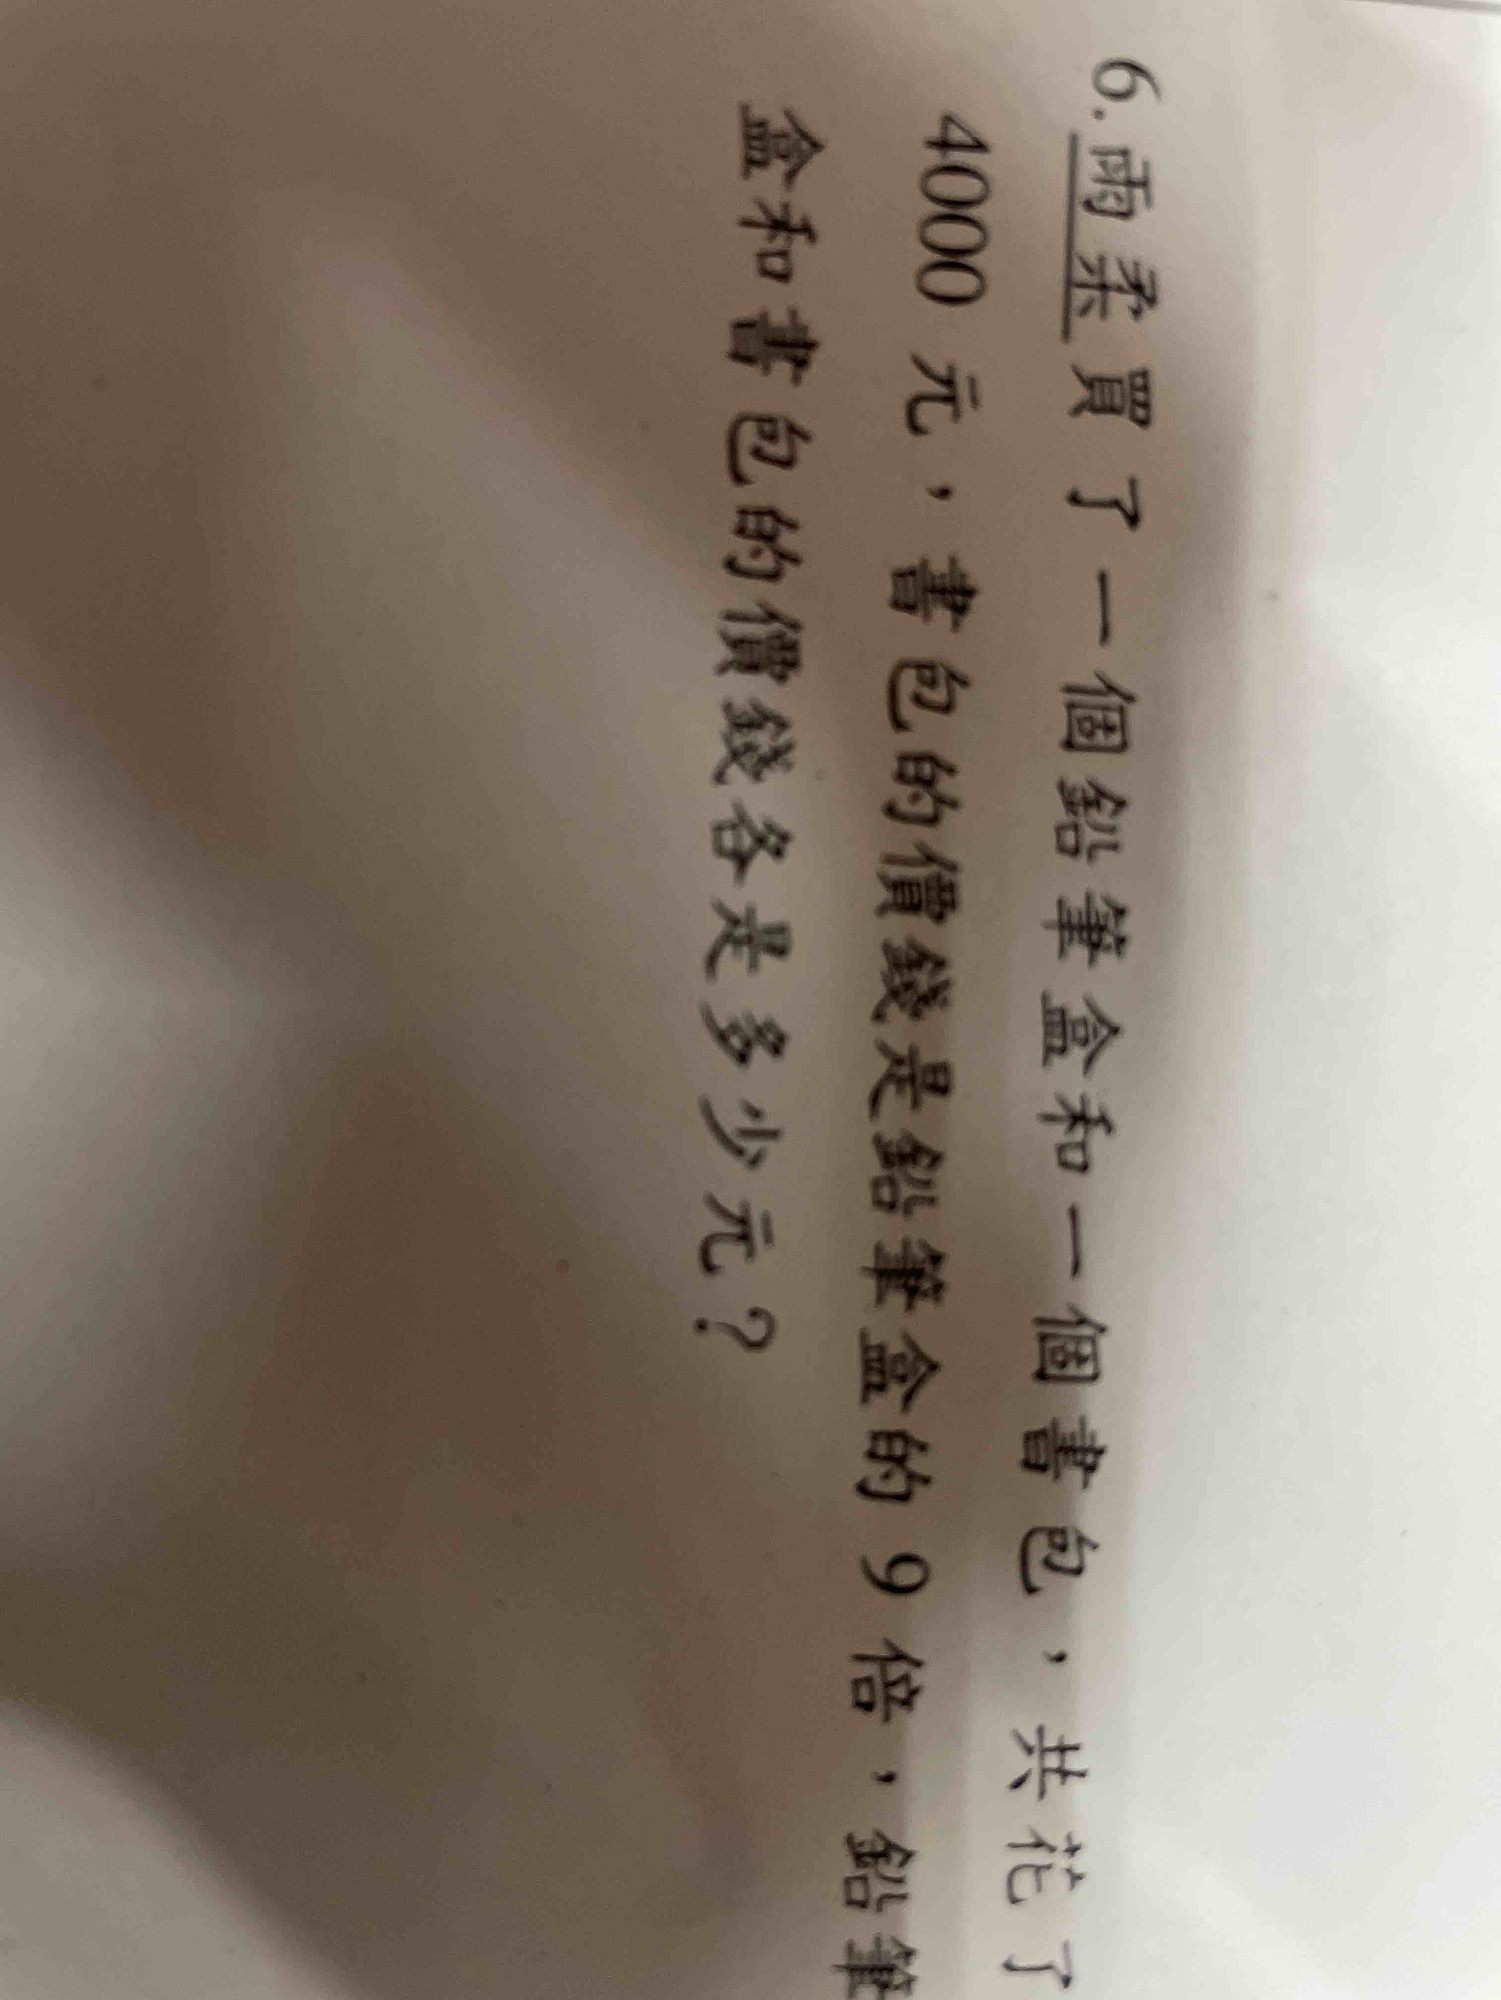 6. 雨柔買了一個鉛筆盒和一個書包，共花了
4000 元，書包的價錢是鉛筆盒的 9 倍，鉛筆
盒和書包的價錢各是多少元？